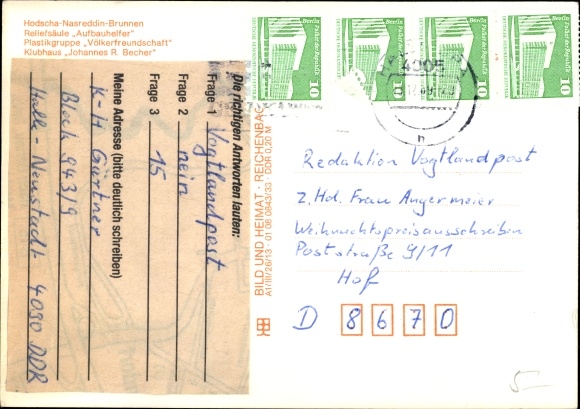 Hodscha-Nasreddin-Brunnen
Reliefsäule „Aufbauhelfer"
Plastikgruppe „Völkerfreundschaft"
Klubhaus „Johannes R. Becher"
Die richtigen Antworten lauten:
Frage 1 Vogtlandpost
Frage 2 nein
Frage 3 15
Meine Adresse (bitte deutlich schreiben)
K-H Gärtner
Block 943/9
Halle-Neustadt 4090 DDR
BILD UND HEIMAT · REICHENBACH
A1/III/26/13 · 01 08 0843/33 · DDR 0,20 M
Berlin Palast der Republik
10
Berlin Palast der Republik
10
Berlin Palast der Republik
10
Berlin Palast der Republik
10
4005
h
Redaktion Vogtlandpost
z.Hd. Frau Angermeier
Weihnachtspreisausschreiben
Poststraße 9/11
Hof
D 8670
5-